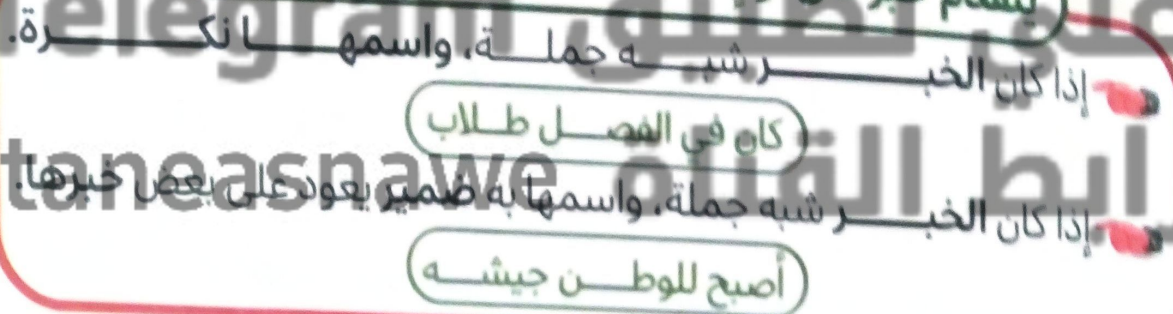 على تطبيق Telegram
إذا كان الخبر شبه جملة، واسمها نكرة.
كان في الفصل طلاب
رابط القناة taneasnawe
إذا كان الخبر شبه جملة، واسمها به ضمير يعود على بعض خبرها.
أصبح للوطن جيشه